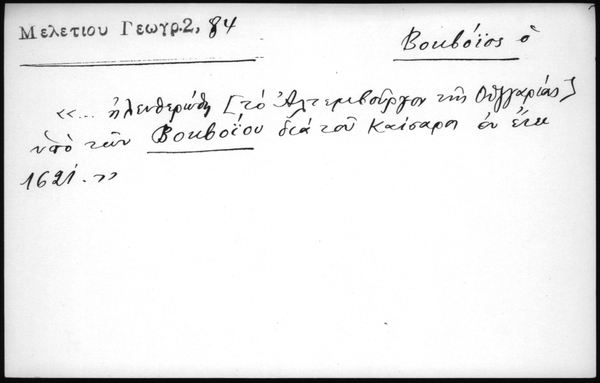 Μελετίου Γεωγρ.2, 84
Βουβόϊος ὁ
«... ἠλευθερώθη [τὸ Ἀλτεμβοῦργον τῆς Οὑγγαρίας]
ὑπὸ τῶν Βουβοΐου διὰ τοῦ Καίσαρα ἐν ἔτει
1621.»